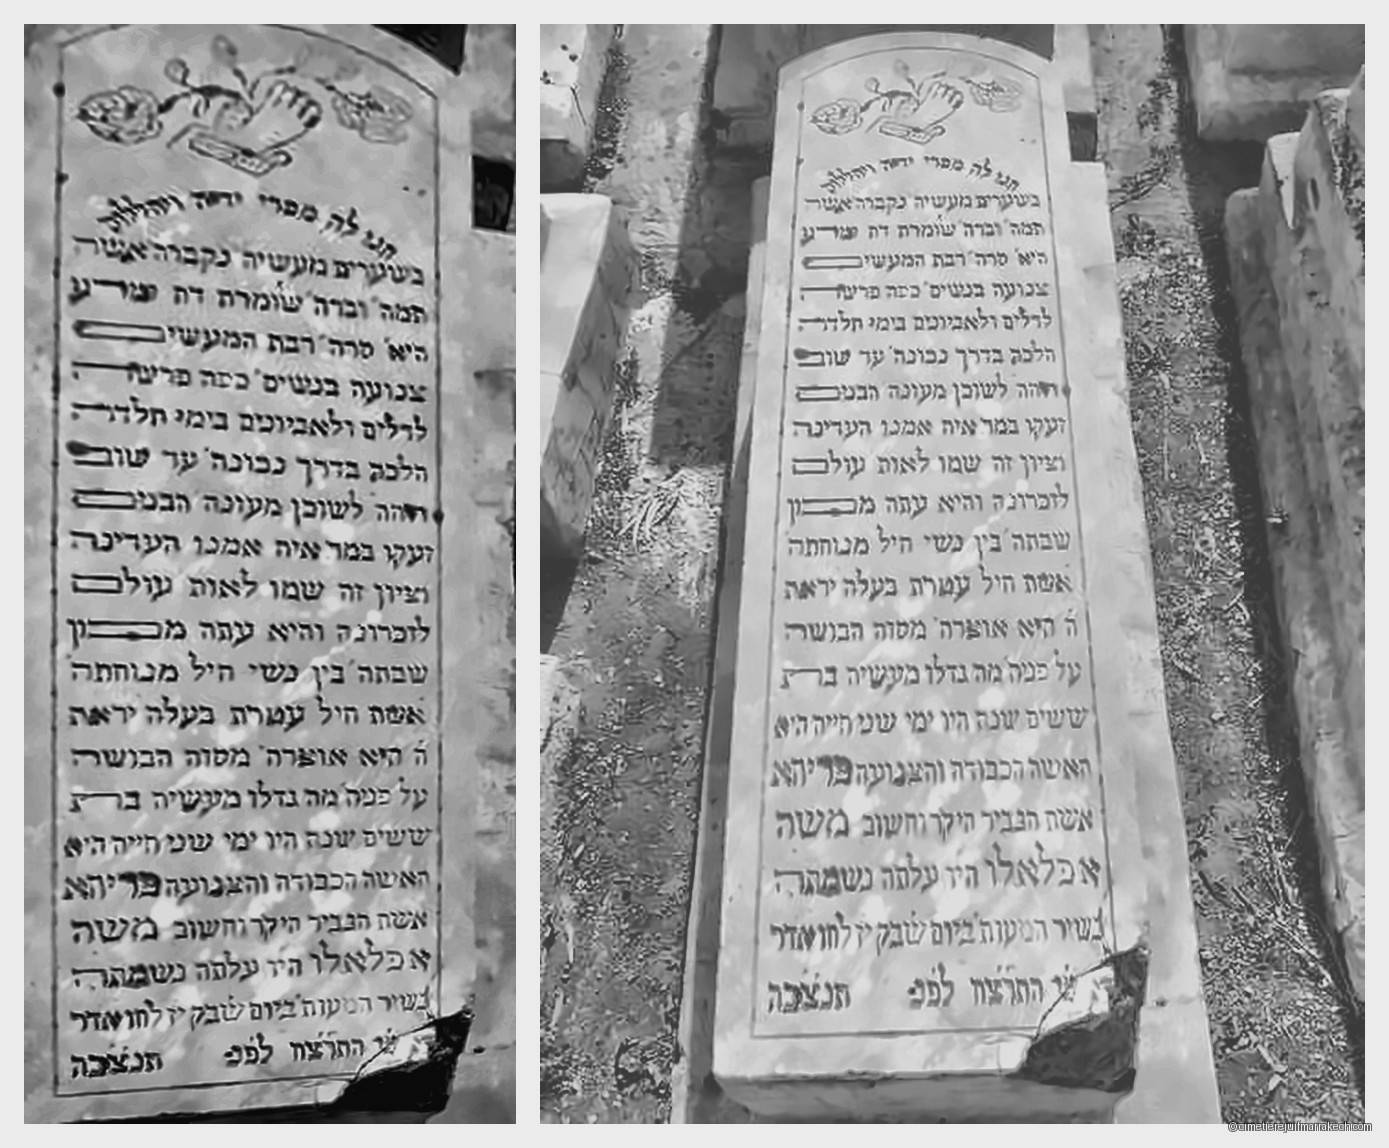 תנו לה מפרי ידיה ויהללוה
בשערים מעשיה נקברה אשה
תמה וברה שומרת דת
היא סרה רבת המעשים
צנועה בנשים כפה פרשה
לדלים ולאביונים בימי חלדה
הלכה בדרך נכונה עד שובה
לשוכן מעונה הבנים
זעקו במר איה אמנו העדינה
וציון זה שמו לאות עולם
לזכרונה והיא עתה
שבתה בין נשי חיל מנוחתה
אשת חיל עטרת בעלה יראת
ה' היא אוצרה מסוה הבושה
על פניה מה גדלו מעשיה בת
ששים שנה היו ימי שני חייה היא
האשה הכבודה והצנועה פריהא
אשת הגביר היקר וחשוב משה
אפלאלו היו עלתה נשמתה
בשיר המעות ביום ש"בק יז לחו אדר
שי התרצח לפ"ג תנצבה
©cimetierejuifmarrakech.com